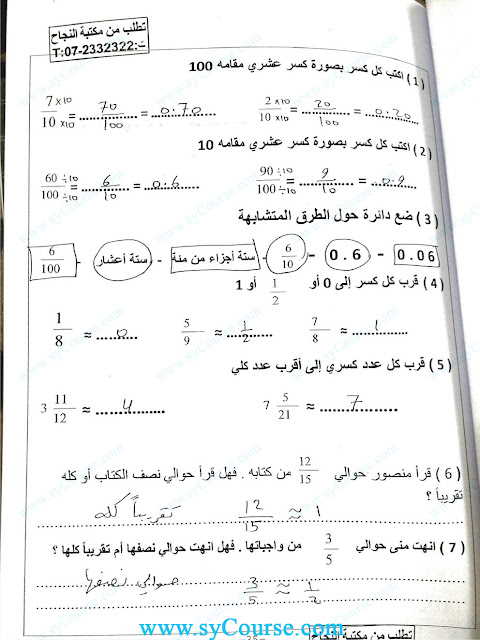 تطلب من مكتبة النجاح
ت:07-2332322:T
( 1 ) اكتب كل كسر بصورة كسر عشري مقامه 100
7 ×10 / 10 ×10 = 70 / 100 = 0.70
2 ×10 / 10 ×10 = 20 / 100 = 0.20
( 2 ) اكتب كل كسر بصورة كسر عشري مقامه 10
60 ÷10 / 100 ÷10 = 6 / 10 = 0.6
90 ÷10 / 100 ÷10 = 9 / 10 = 0.9
( 3 ) ضع دائرة حول الطرق المتشابهة
0.06 - 0.6 - 6/10 - ستة أجزاء من مئة - ستة أعشار - 6/100
( 4 ) قرب كل كسر إلى 0 أو 1/2 أو 1
1/8 ≈ 0
5/9 ≈ 1/2
7/8 ≈ 1
( 5 ) قرب كل عدد كسري إلى أقرب عدد كلي
3 11/12 ≈ 4
7 5/21 ≈ 7
( 6 ) قرأ منصور حوالي 12/15 من كتابه . فهل قرأ حوالي نصف الكتاب أو كله
تقريباً ؟
تقريباً كله 12/15 ≈ 1
( 7 ) انهت منى حوالي 3/5 من واجباتها . فهل انهت حوالي نصفها أم تقريباً كلها ؟
حوالي نصفها 3/5 ≈ 1/2
تطلب من مكتبة النجاح
www.syCourse.com